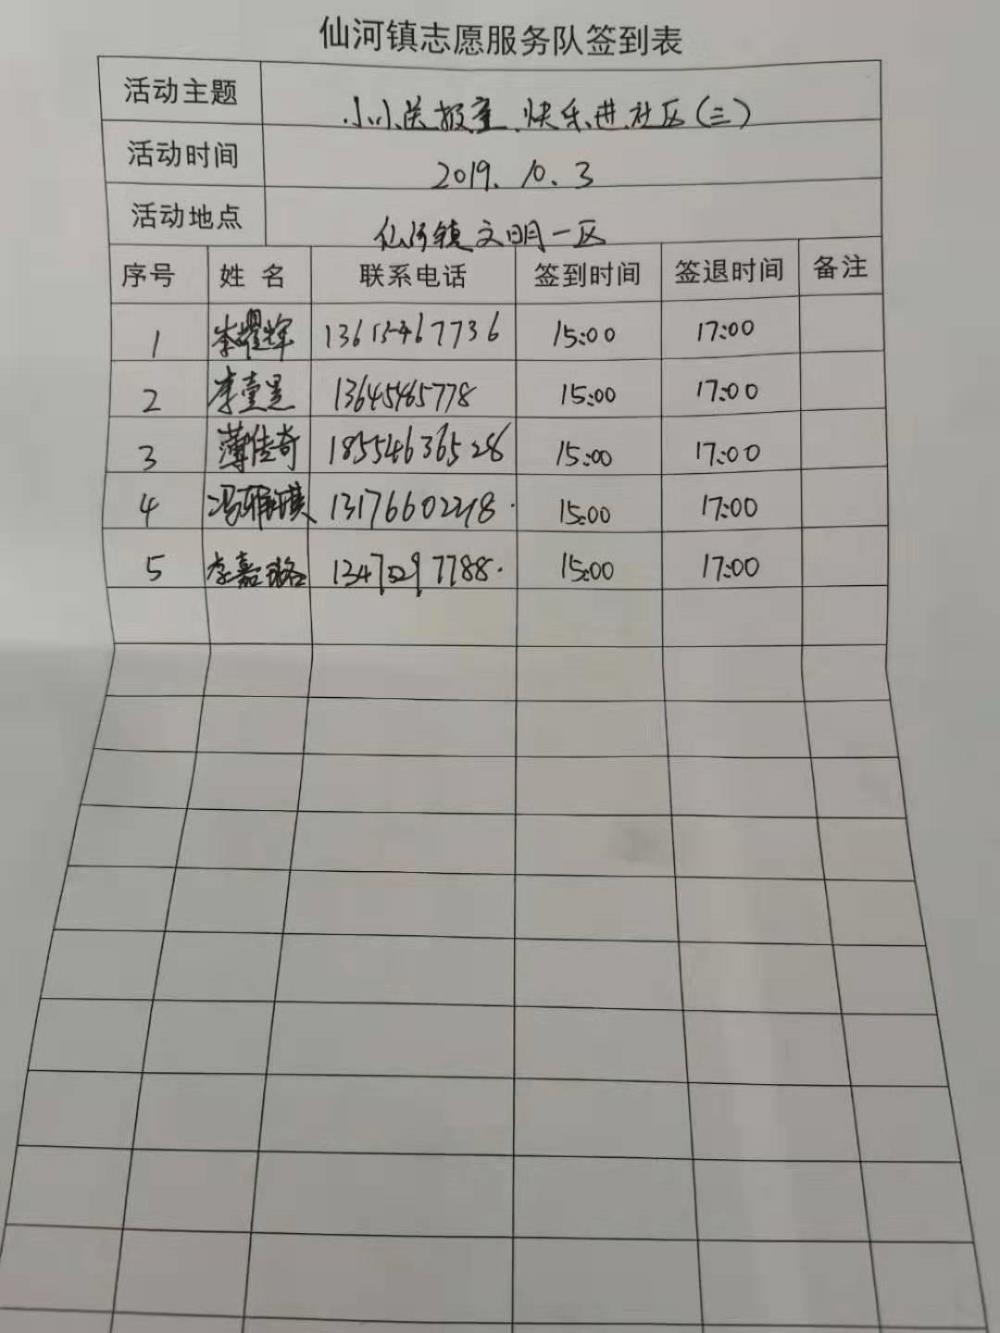 仙河镇志愿服务队签到表
活动主题 小小送报童、快乐进社区(三)
活动时间 2019.10.3
活动地点 仙河镇文明一区
序号 姓名 联系电话 签到时间 签退时间 备注
1 李耀辉 13615467736 15:00 17:00
2 李壹昱 13645465778 15:00 17:00
3 薄传奇 18554636528 15:00 17:00
4 冯雅琪 15:00 17:00
5 李嘉璐 15:00 17:00